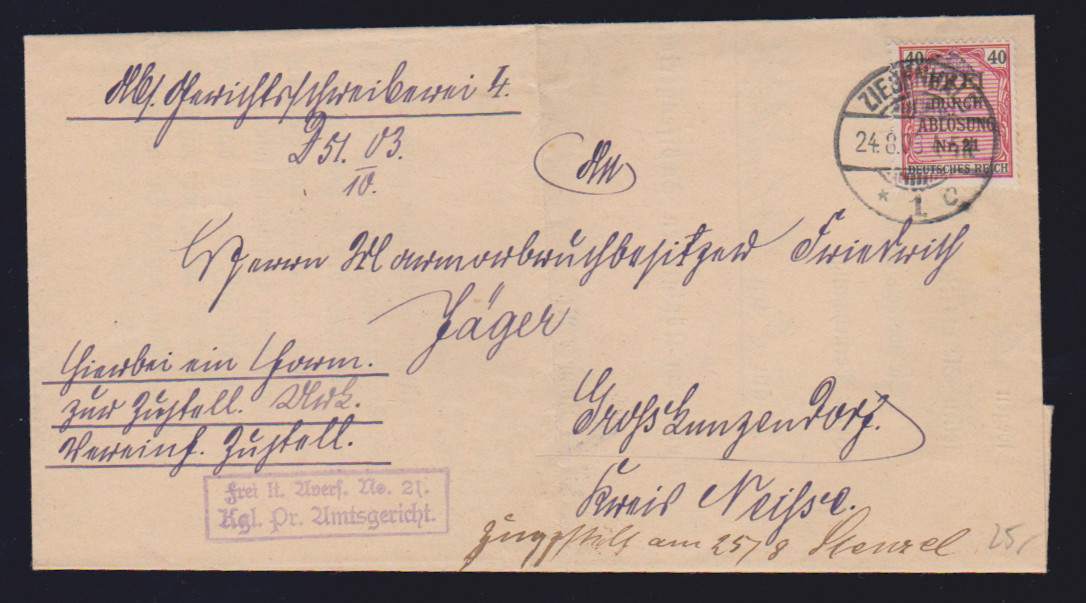 Abs. Gerichtsschreiberei 4.
D 51. 03.
10.
An
Herrn Marmorbruchbesitzer Friedrich
Jäger
Hierbei ein Form.
zur Zustell. Urk.
Vereinf. Zustell.
Groß Kunzendorf.
Kreis Neisse.
Frei lt. Avers. No. 21.
Kgl. Pr. Amtsgericht.
am 25/8 Stenzel
25,-
40 40
FREI
DURCH
ABLÖSUNG
Nr. 21
DEUTSCHES REICH
ZIEGENHALS
24.8.03
* 1 c